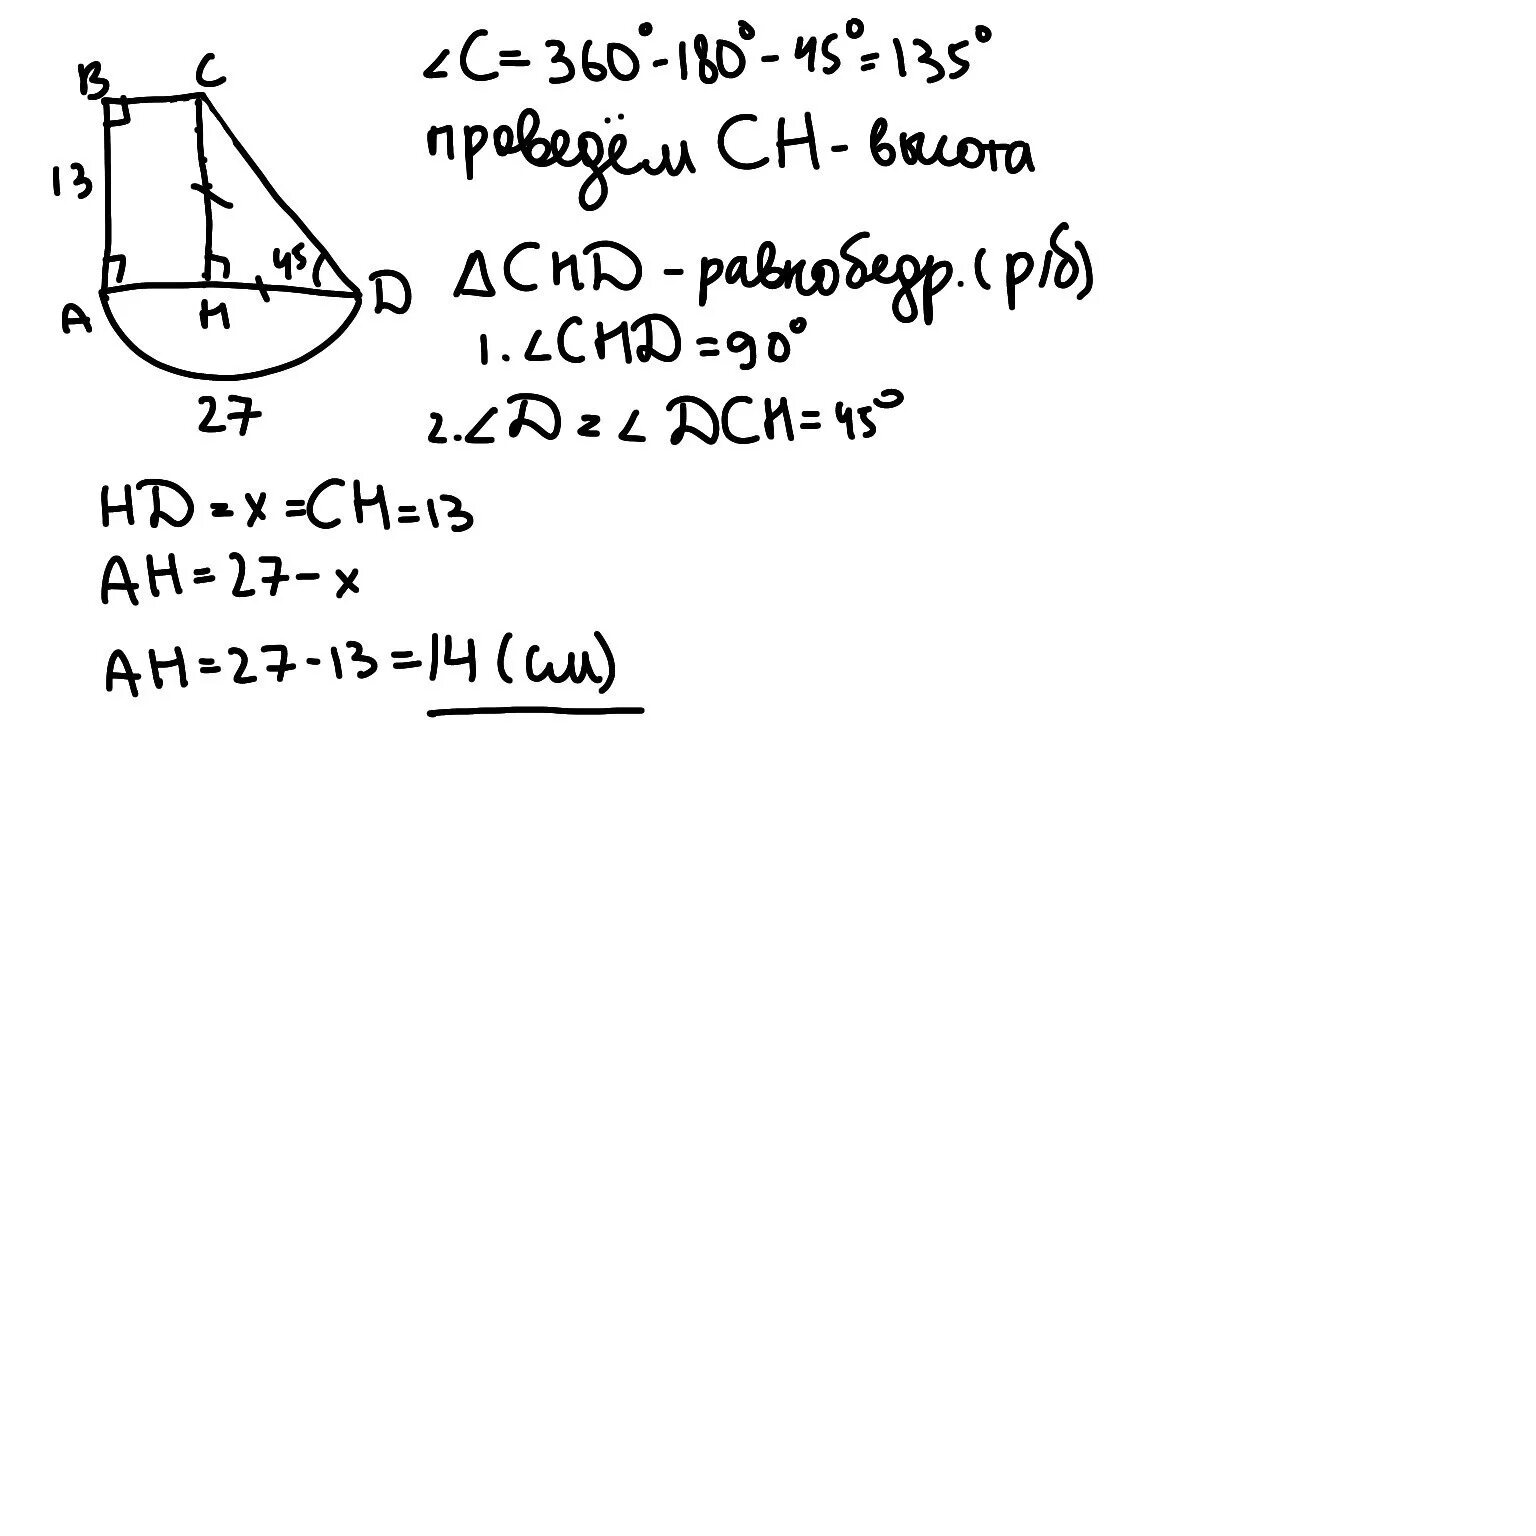 B C
13
45
A H D
27
∠C = 360° - 180° - 45° = 135°
проведём CH - высота
△CHD - равнобедр. (р/б)
1. ∠CHD = 90°
2. ∠D = ∠DCH = 45°
HD = x = CH = 13
AH = 27 - x
AH = 27 - 13 = 14 (см)